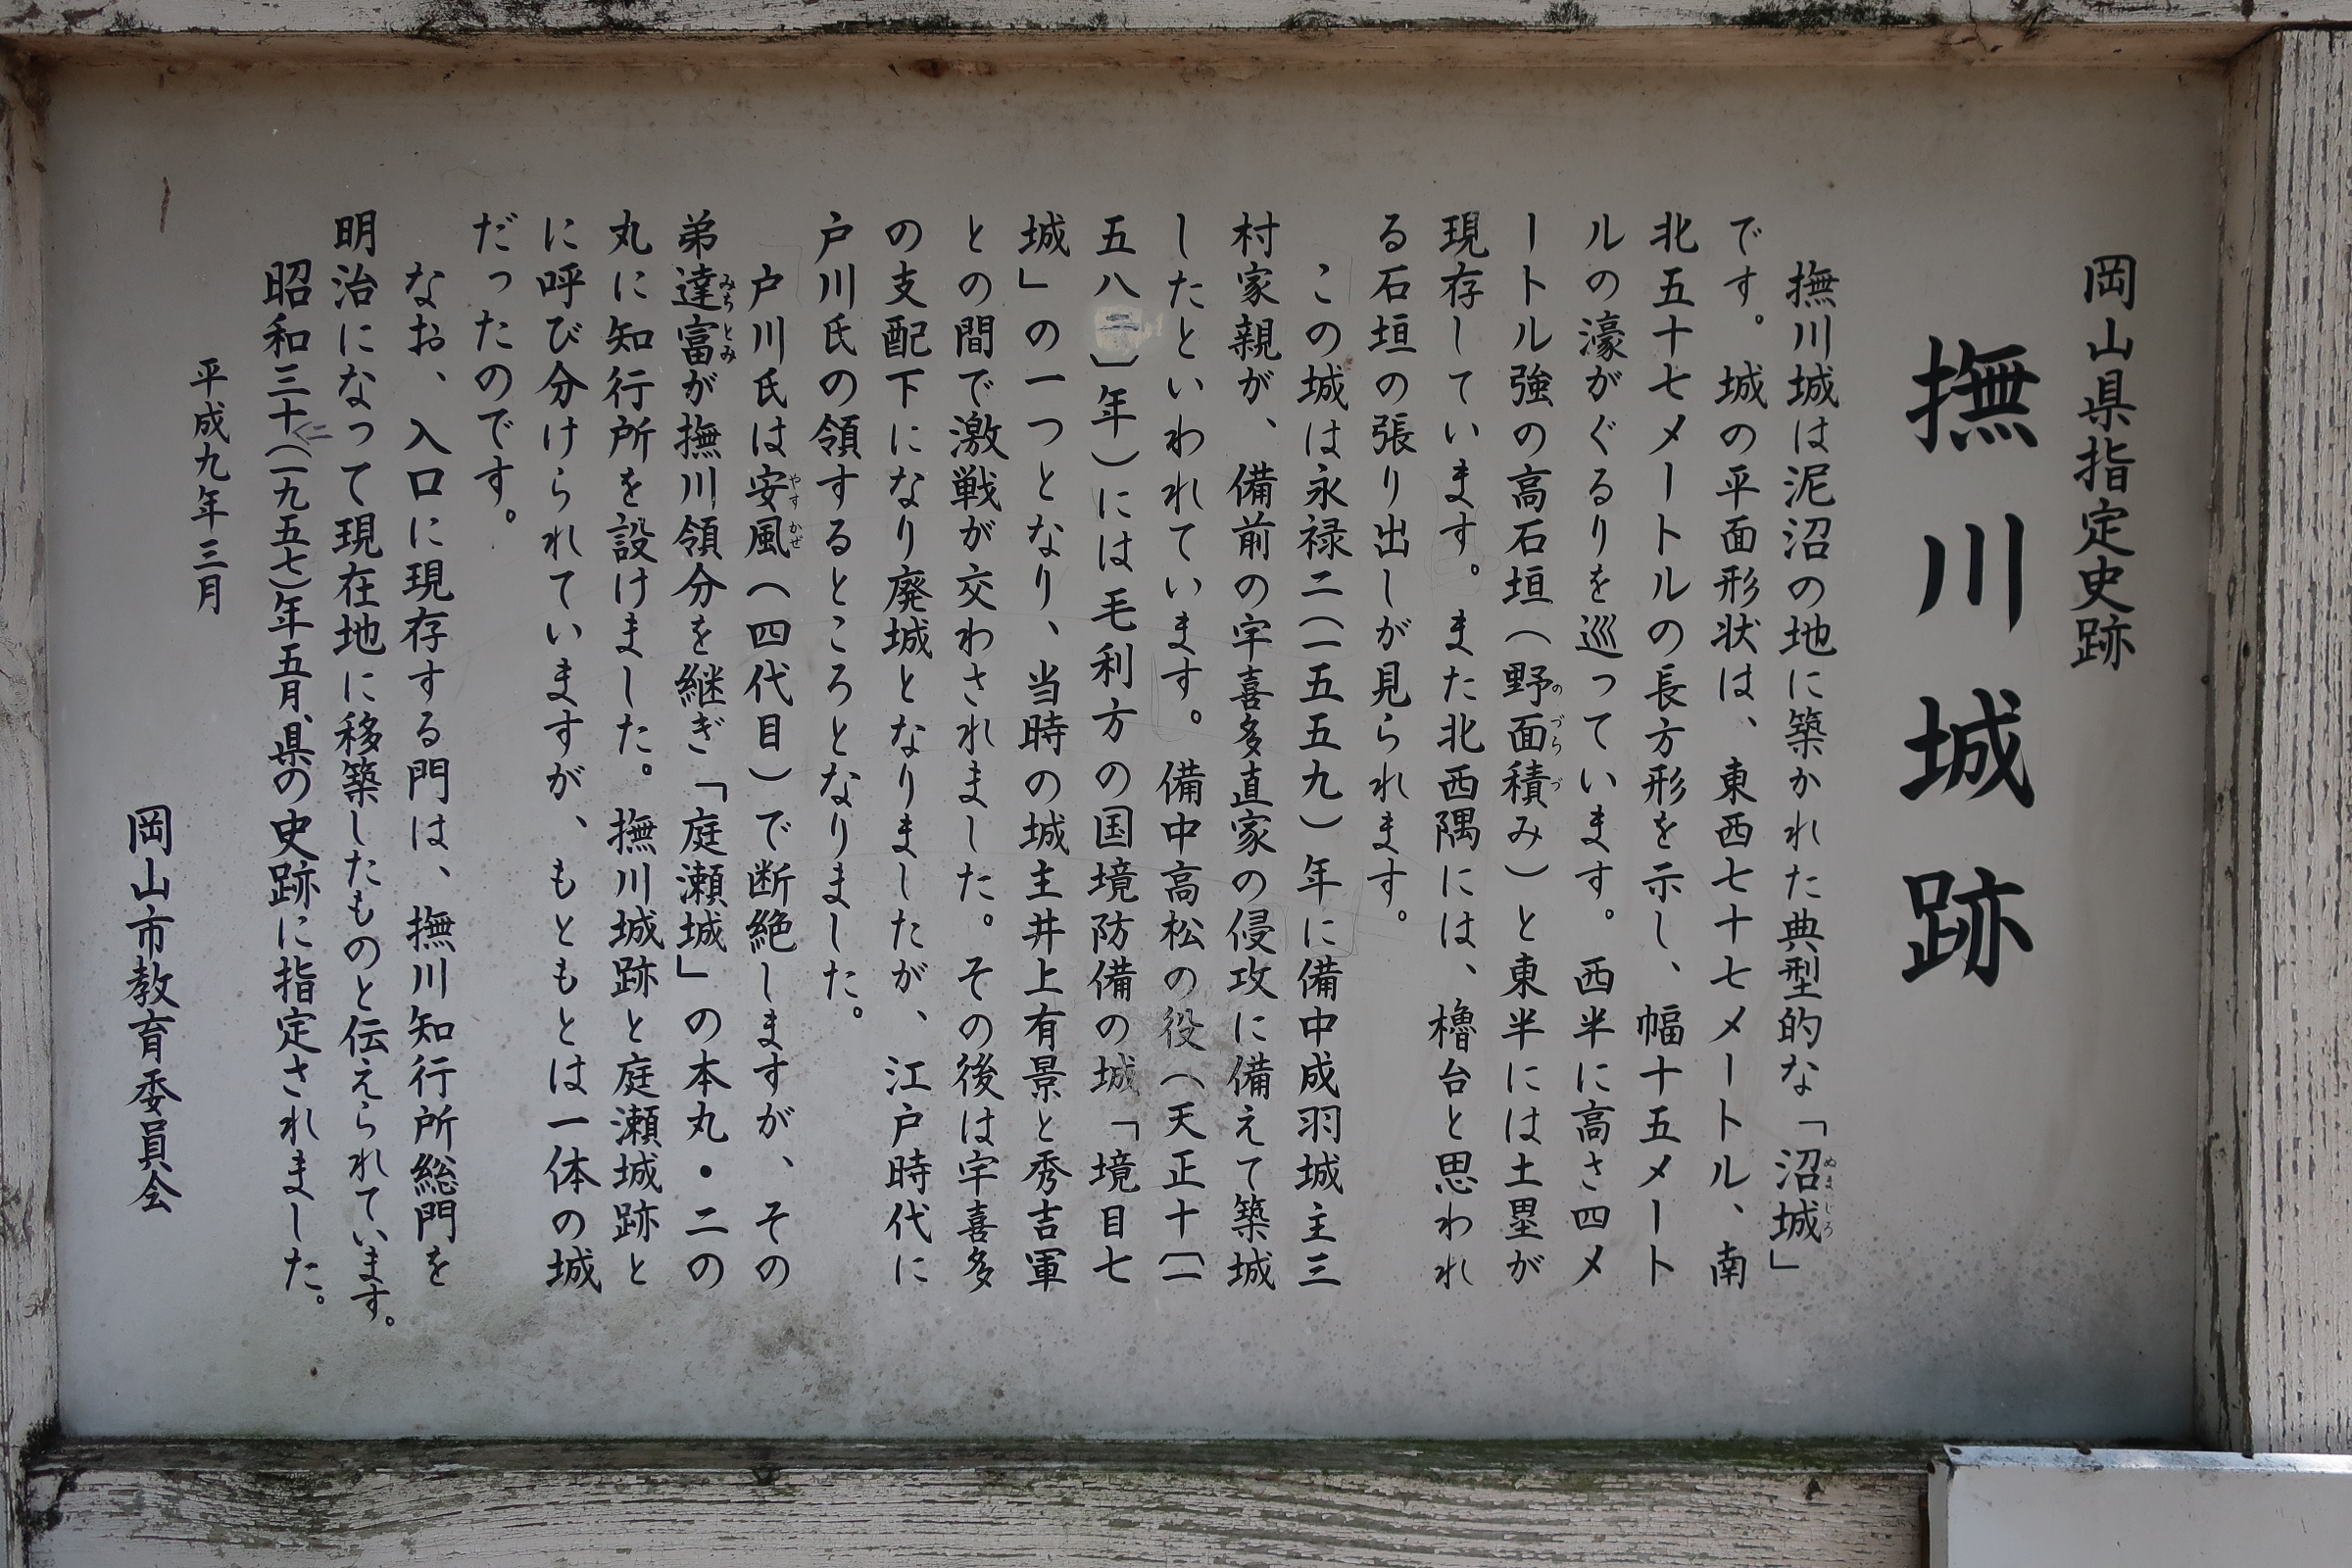 岡山県指定史跡
撫川城跡
撫川城は泥沼の地に築かれた典型的な「沼城」
ぬまじろ
です。城の平面形状は、東西七十七メートル、南
北五十七メートルの長方形を示し、幅十五メート
ルの濠がぐるりを巡っています。西半に高さ四メ
ートル強の高石垣(野面積み)と東半には土塁が
のづらづ
現存しています。また北西隅には、櫓台と思われ
る石垣の張り出しが見られます。
この城は永禄二(一五五九)年に備中成羽城主三
村家親が、備前の宇喜多直家の侵攻に備えて築城
したといわれています。備中高松の役(天正十〔一
五八二〕年)には毛利方の国境防備の城「境目七
城」の一つとなり、当時の城主井上有景と秀吉軍
との間で激戦が交わされました。その後は宇喜多
の支配下になり廃城となりましたが、江戸時代に
戸川氏の領するところとなりました。
戸川氏は安風(四代目)で断絶しますが、その
やすかぜ
弟達富が撫川領分を継ぎ「庭瀬城」の本丸・二の
みちとみ
丸に知行所を設けました。撫川城跡と庭瀬城跡と
に呼び分けられていますが、もともとは一体の城
だったのです。
なお、入口に現存する門は、撫川知行所総門を
明治になって現在地に移築したものと伝えられています。
昭和三十二(一九五七)年五月、県の史跡に指定されました。
平成九年三月
岡山市教育委員会